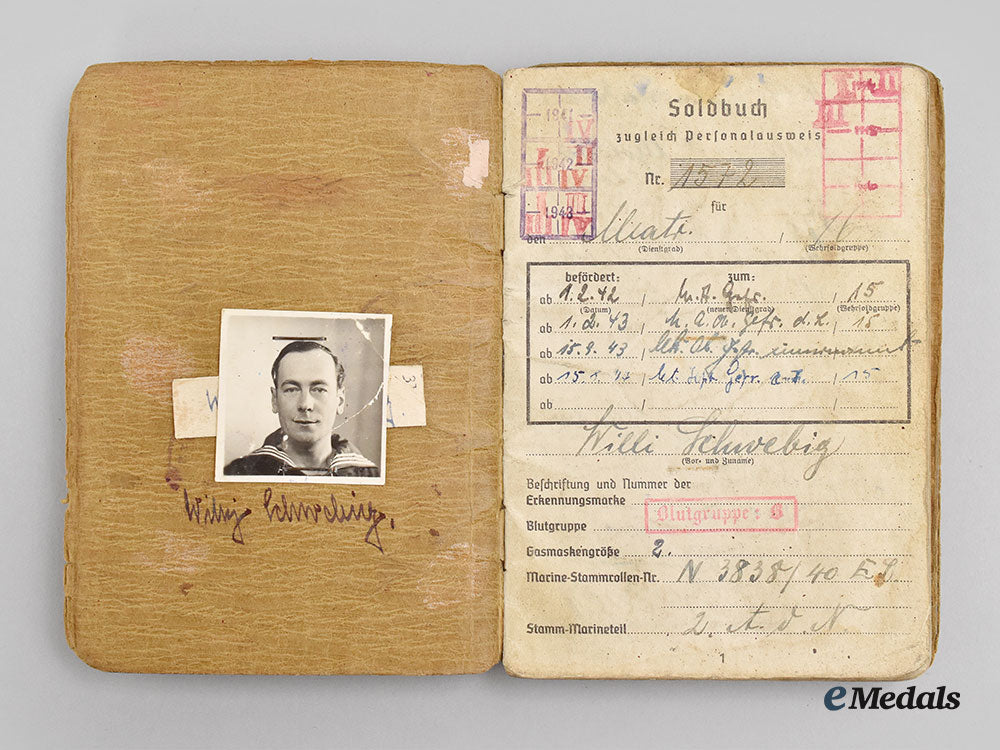 Willy Schwebig.
Soldbuch
zugleich Personalausweis
Nr. 1572
für
den Matr. IV
(Dienstgrad) (Wehrsoldgruppe)
1941 IV
1942 II
1943 III
befördert: zum:
ab 1.2.42 M.A. Gefr. 15
(Datum) (neuen Dienstgrad) (Wehrsoldgruppe)
ab 1.2.43 M.A.Ob. Gefr. d.R. 15
ab 15.9.43 Gefr.
ab 15 Gefr. 15
ab
Willi Schwebig
(Vor- und Zuname)
Beschriftung und Nummer der
Erkennungsmarke
Blutgruppe Blutgruppe: B
Gasmaskengröße 2.
Marine-Stammrollen-Nr. N 3838/40
Stamm-Marineteil 2. A. d. N.
1
eMedals